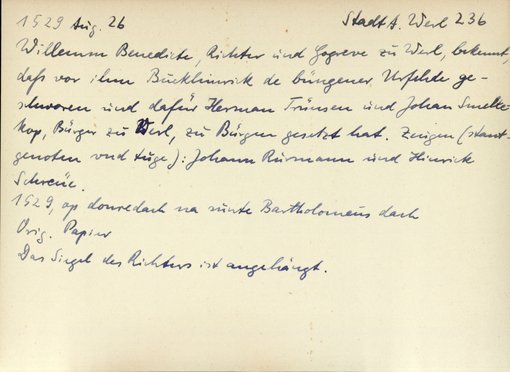 1529 Aug. 26 Stadt A. Werl 236
Willemm Benedicte, Richter und Gogreve zu Werl, bekennt,
daß vor ihm Bucklinrik de büngener Urfehde ge-
schworen und dafür Herman Trünsen und Johan Smelte-
kop, Bürger zu Werl, zu Bürgen gesetzt hat. Zeugen (stant-
genoten vnd tuge): Johann Rürmann und Hinrick
Schreüe.
1529, op donredach na sunte Bartholomeus dach
Orig. Papier
Das Siegel des Richters ist angehängt.